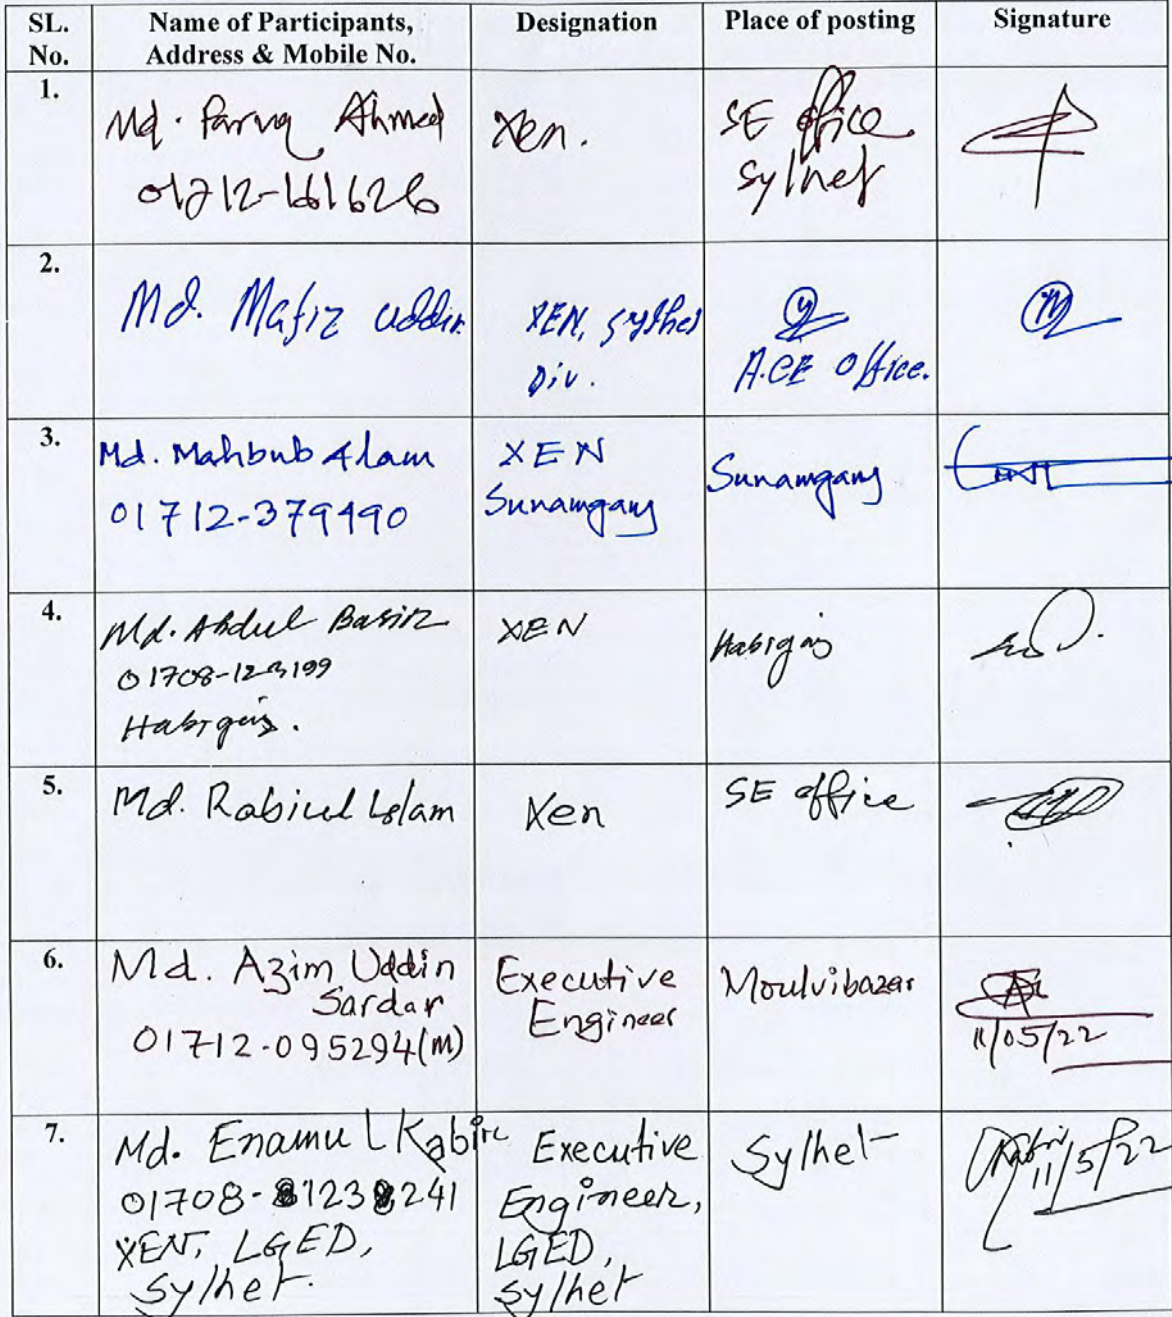 SL. No.
Name of Participants, Address & Mobile No.
Designation
Place of posting
Signature
1.
Md. Faruq Ahmed
01712-161626
Xen.
SE office
Sylhet
2.
Md. Mafiz uddin
XEN, Sylhet
Div.
A.CE Office.
3.
Md. Mahbub Alam
01712-379490
XEN
Sunamganj
Sunamganj
4.
Md. Abdul Basir
01708-123199
Habiganj.
XEN
Habiganj
5.
Md. Rabiul Islam
Xen
SE office
6.
Md. Azim Uddin
Sardar
01712-095294(M)
Executive
Engineer
Moulvibazar
11/05/22
7.
Md. Enamul Kabir
01708-123241
XEN, LGED,
Sylhet.
Executive
Engineer,
LGED,
Sylhet
Sylhet
Kabir
11/5/22